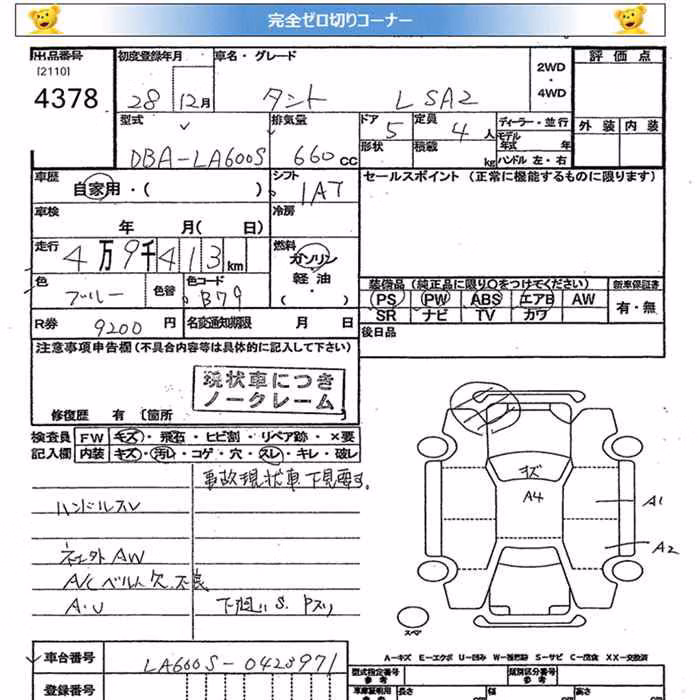 完全ゼロ切りコーナー
出品番号 初度登録年月 車名・グレード 2WD・4WD 評価点
[2110]
4378 28 12月 タント L SA2
型式 排気量 ドア 定員 ディーラー・並行 外装 内装
モデル年式 年
DBA-LA600S 660cc 5 4人
形状 積載 kg ハンドル 左・右
車歴 自家用・( ) シフト 1AT セールスポイント (正常に機能するものに限ります)
車検 年 月( 日) 冷房
走行 4万9千413km 燃料 ガソリン
軽油
( ・ )
色 ブルー 色替 色コード B79 装備品(純正品に限り○をつけてください) 新車保証書
PS PW ABS エアB AW 有・無
SR ナビ TV カワ
R券 9200円 名変通知期限 月 日 後日品
注意事項申告欄 (不具合内容等は具体的に記入して下さい)
現状車につき
ノークレーム
修復歴 有 [箇所
検査員 FW キズ・飛石・ヒビ割・リペア跡・×要
記入欄 内装 キズ・汚レ・コゲ・穴・スレ・キレ・破レ
事故現状車 下見要す。
ハンドルスレ
社外AW
A/C ベルト欠 不良
キズ
A4
A1
A2
スペア
車台番号 LA600S-0423971
A-キズ E-エクボ U-凹み W-補修跡 S-サビ C-腐食 XX-交換済
登録番号
型式指定番号 参考 類別区分番号 参考
車庫証明用 参考 長さ 幅 高さ